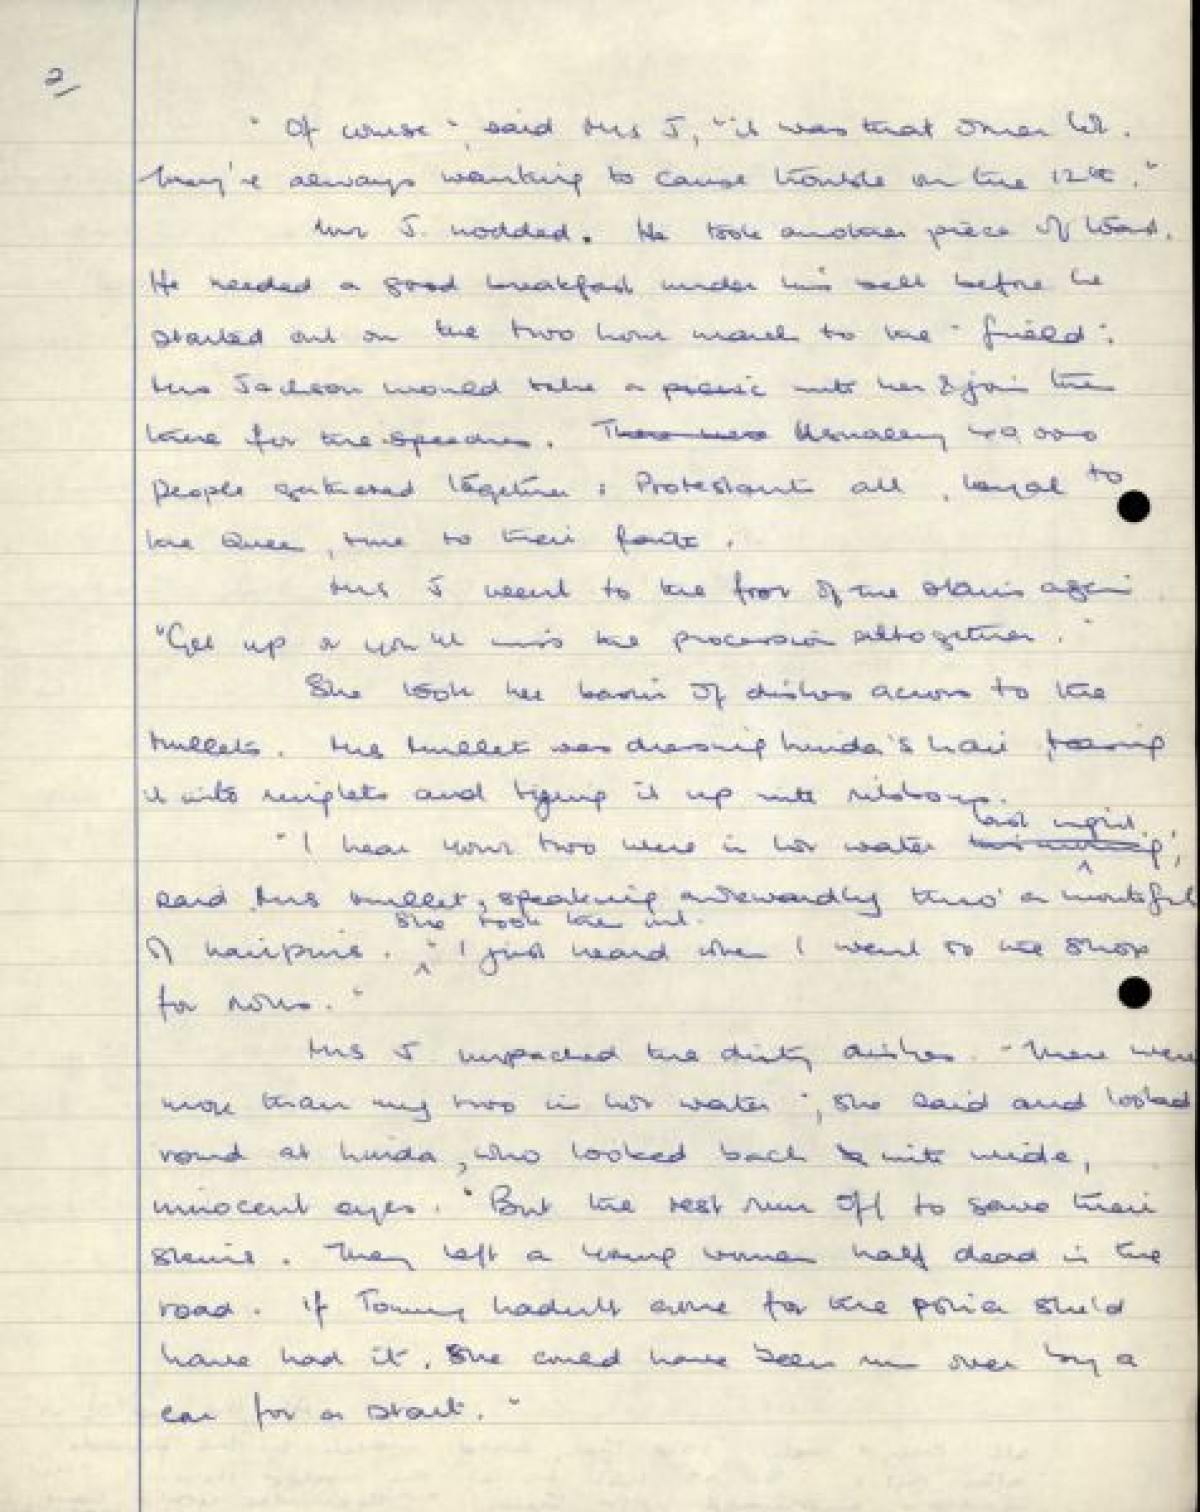 2/
"Of course", said Mrs J, "it was that
They're always wanting to cause trouble on the 12th."
Mr J. nodded. He took another piece of toast.
He needed a good breakfast under his belt before he
started out on the two hour march to the "field".
Mrs Jackson would take a picnic with her & join him
there for the speeches. There were Usually 40,000
people gathered together: Protestants all, loyal to
the Queen, true to their faith.
Mrs J went to the foot of the stairs again
"Get up or you'll miss the procession altogether."
She took her basin of dishes across to the
Mullets. Mrs Mullet was dressing Linda's hair teasing
it into ringlets and tying it up with ribbons.
last night.
"I hear your two were in hot water this morning",
said Mrs Mullet, speaking awkwardly thro' a mouthful
She took them out.
of hairpins. "I just heard when I went to the shop
for rolls."
Mrs J unpacked the dirty dishes. "There were
more than my two in hot water", she said and looked
round at Linda, who looked back with wide,
innocent eyes. "But the rest run off to save their
skins. They left a young woman half dead in the
road. If Tommy hadn't gone for the police she'd
have had it. She could have been run over by a
car for a start."